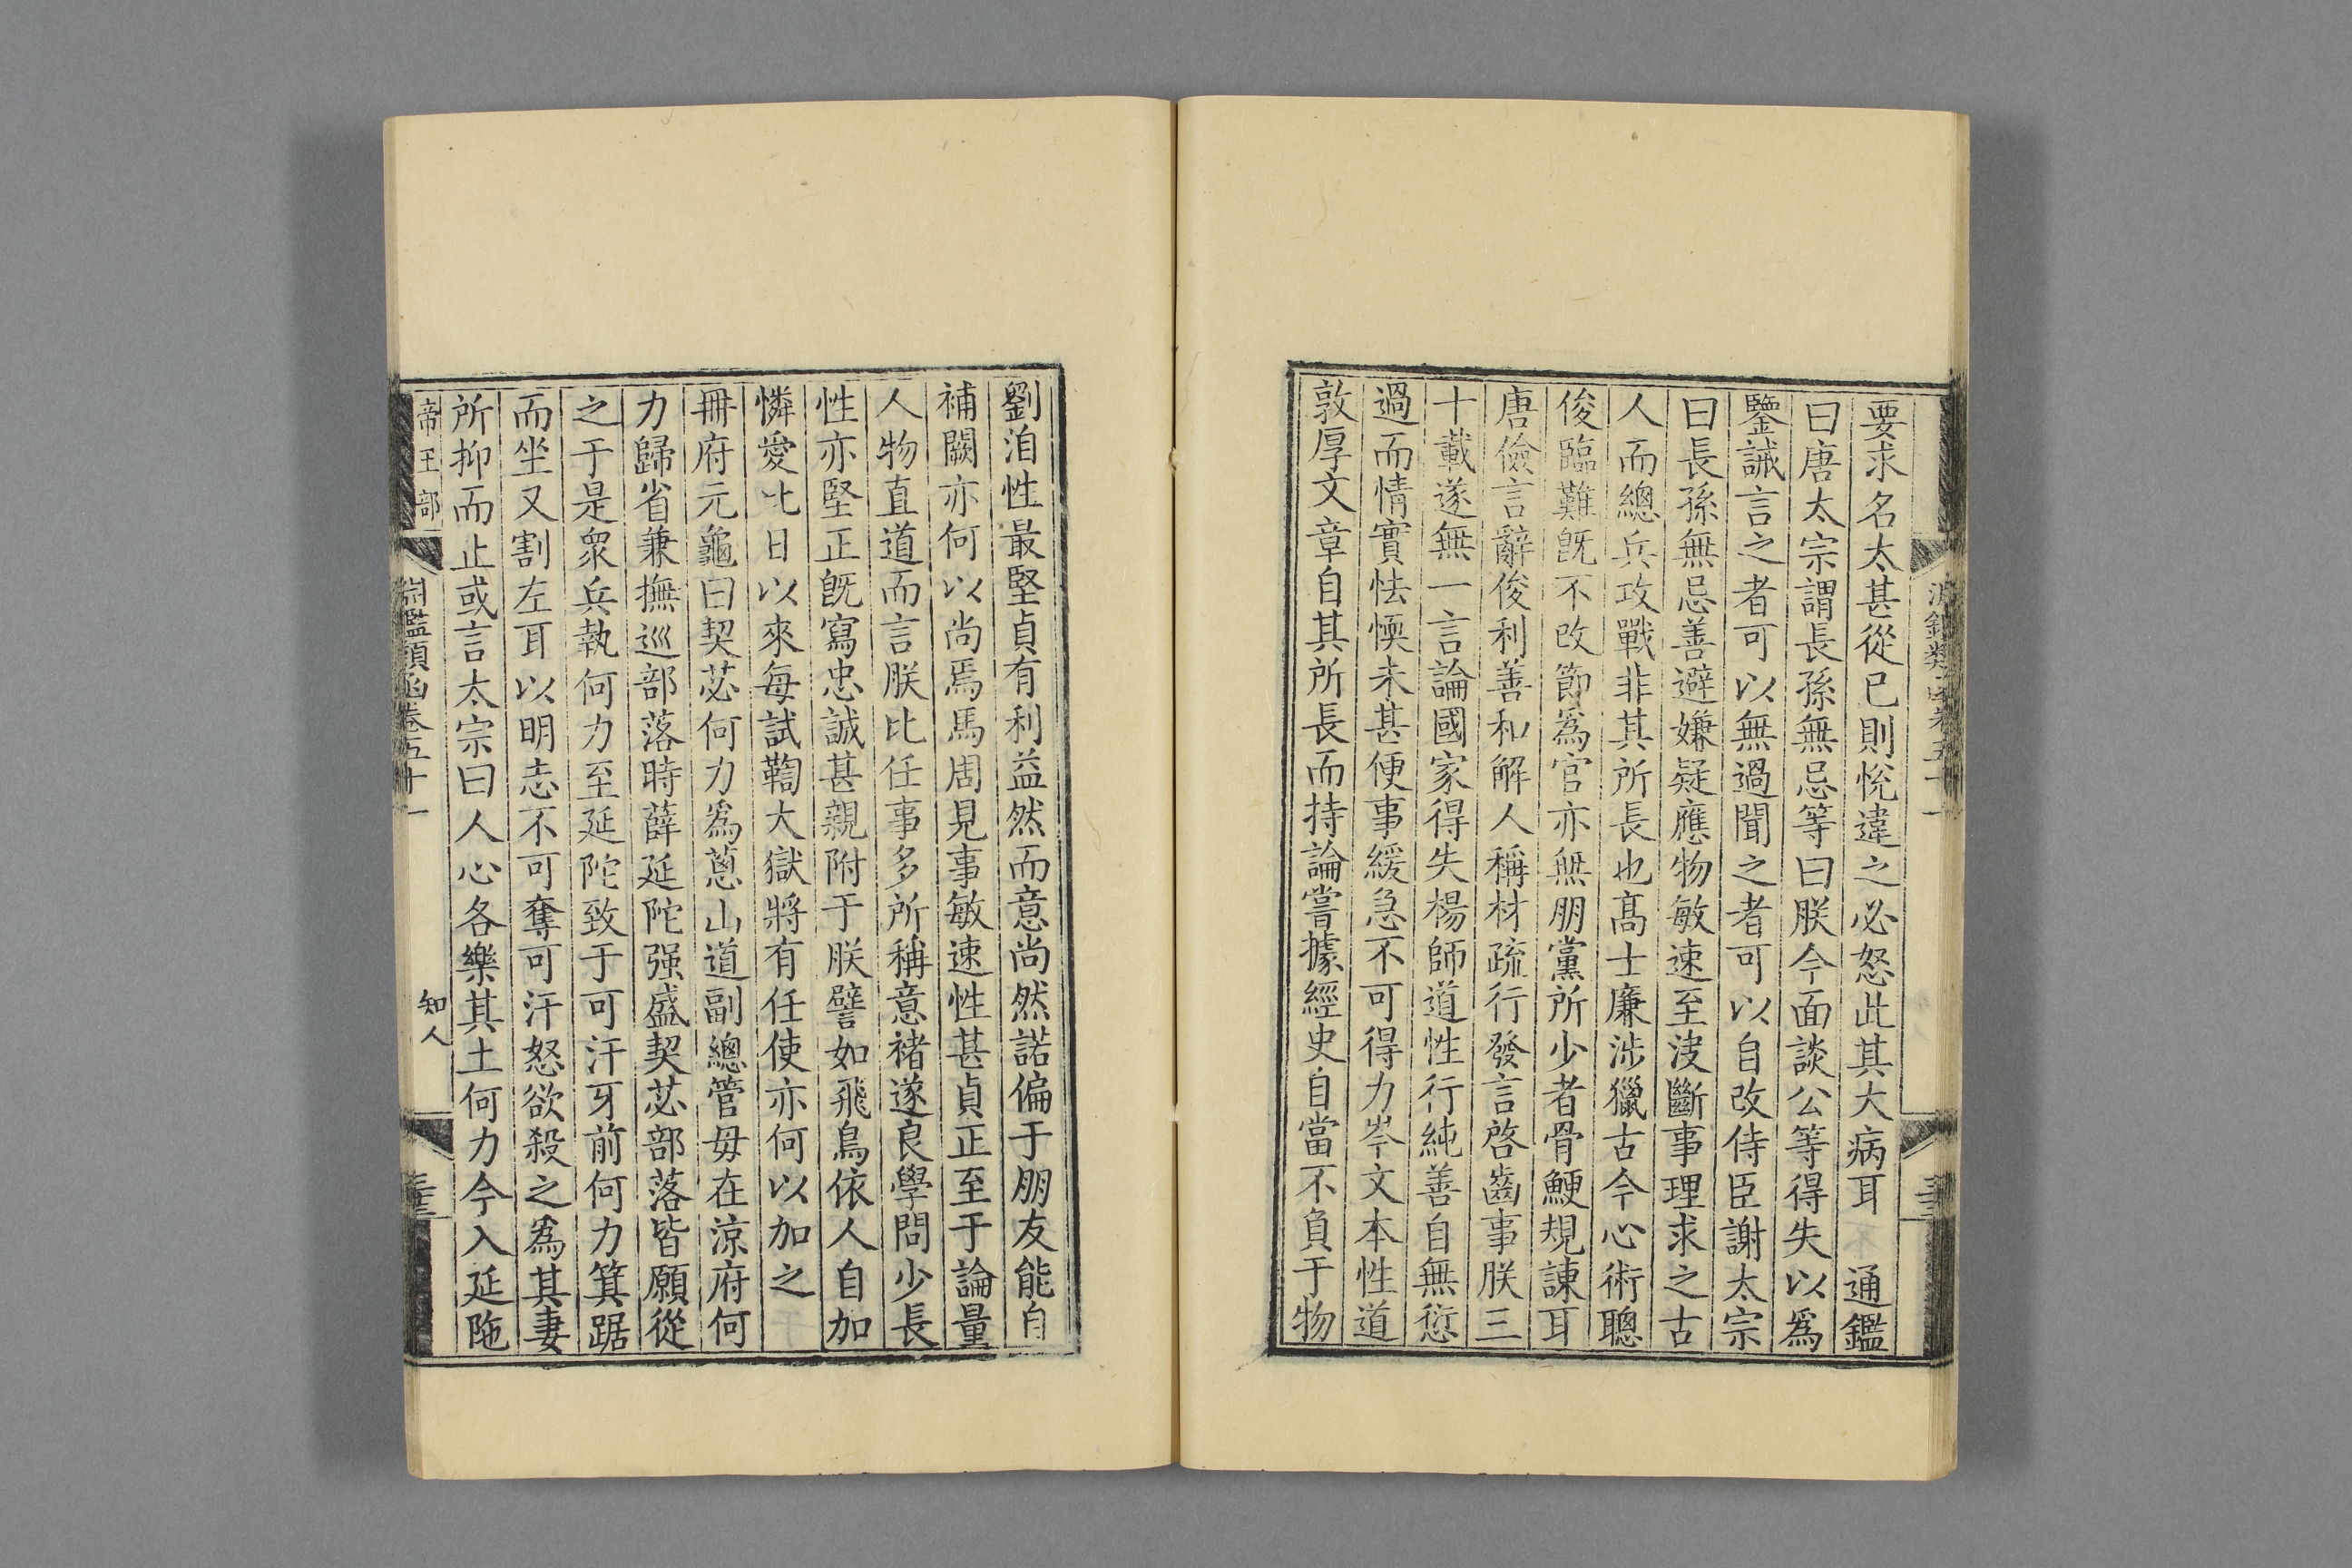 要求名太甚從已則悅違之必怒此其大病耳 通鑑
曰唐太宗謂長孫無忌等曰朕今面談公等得失以爲
鑒誡言之者可以無過聞之者可以自改侍臣謝太宗
曰長孫無忌善避嫌疑應物敏速至決斷事理求之古
人而總兵攻戰非其所長也髙士廉涉獵古今心術聰
俊臨難旣不改節爲官亦無朋黨所少者骨鯁規諫耳
唐儉言辭俊利善和解人稱材疏行發言啓齒事朕三
十載遂無一言論國家得失楊師道性行純善自無愆
過而情實怯愞未甚便事緩急不可得力岑文本性道
敦厚文章自其所長而持論嘗據經史自當不負于物
劉洎性最堅貞有利益然而意尚然諾偏于朋友能自
補闕亦何以尚焉馬周見事敏速性甚貞正至于論量
人物直道而言朕比任事多所稱意禇遂良學問少長
性亦堅正旣寫忠誠甚親附于朕譬如飛鳥依人自加
憐愛比日以來每試鞫大獄將有任使亦何以加之
冊府元龜曰契苾何力爲蔥山道副總管毋在涼府何
力歸省兼撫巡部落時薛延陀强盛契苾部落皆願從
之于是衆兵執何力至延陀致于可汗牙前何力箕踞
而坐又割左耳以明志不可奪可汗怒欲殺之爲其妻
所抑而止或言太宗曰人心各樂其土何力今入延陁
帝王部 淵鑑類函卷五十一 知人